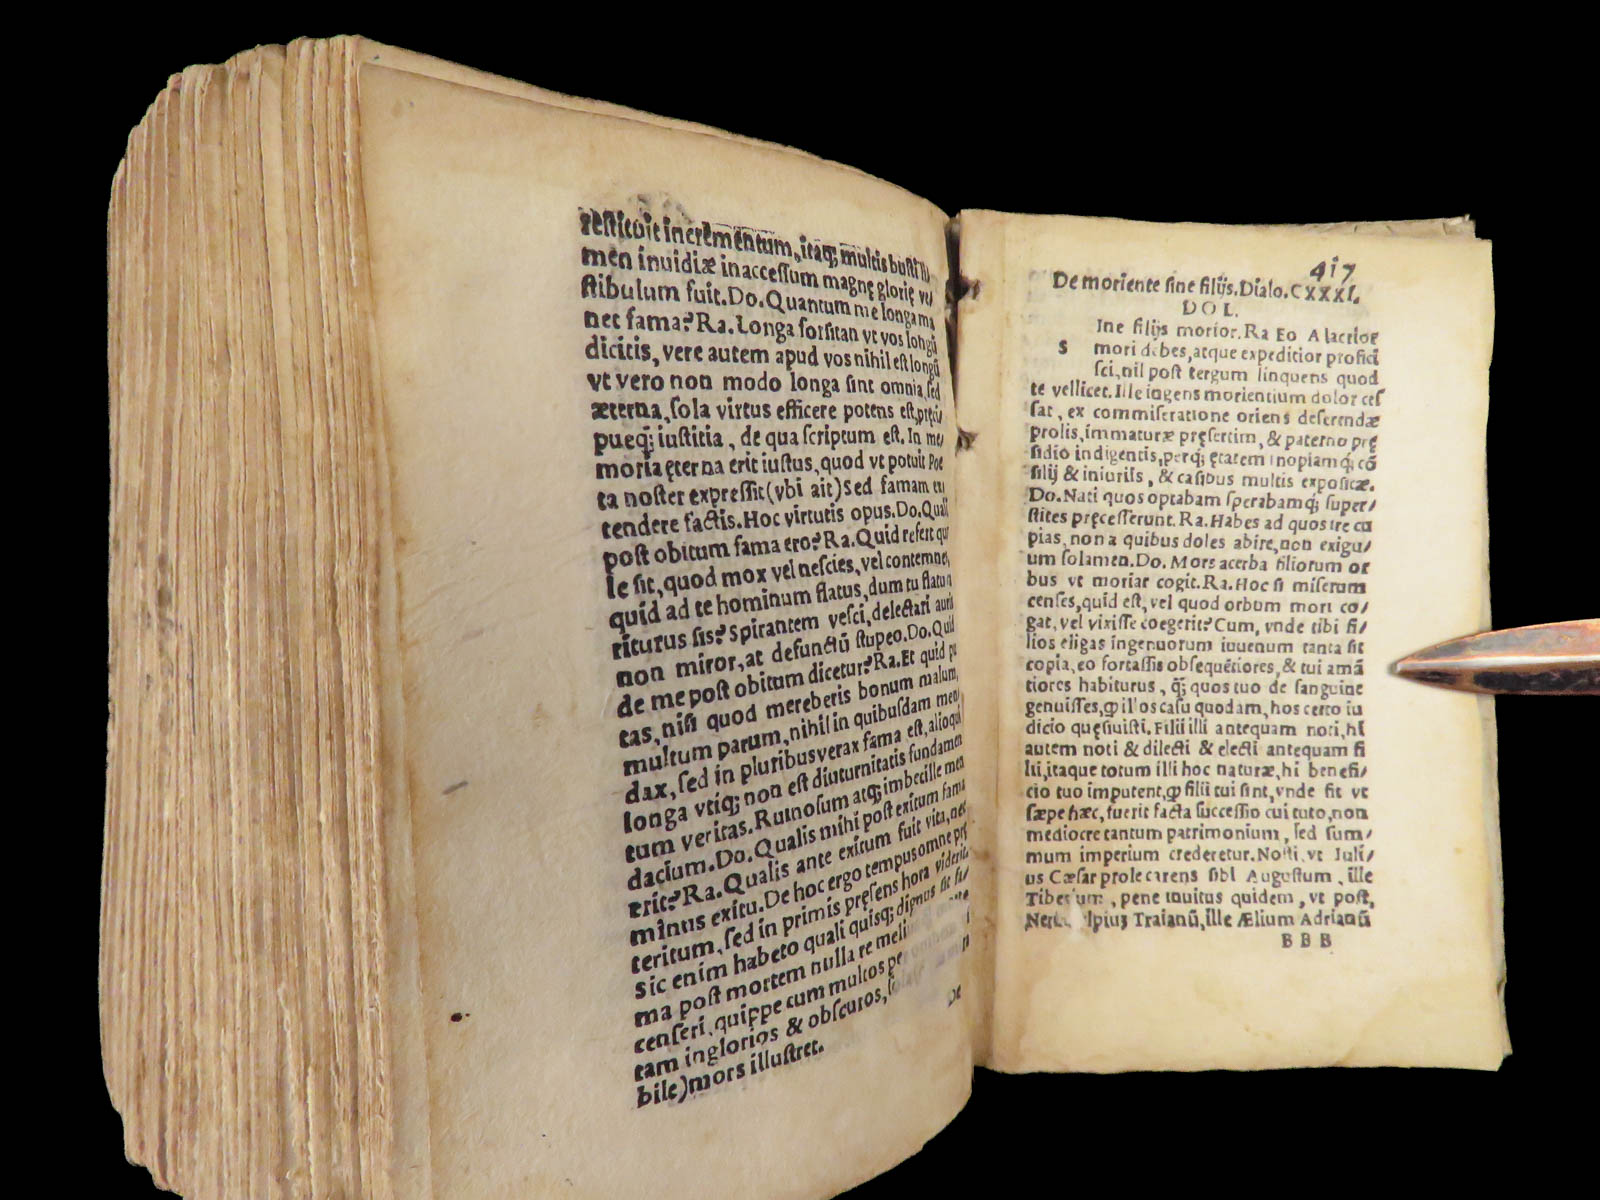 restituit incrementum, itaq; multis busti
men inuidiæ inaccessum magnę glorię ve/
stibulum fuit. Do. Quantum me longa ma
net fama? Ra. Longa forsitan vt vos longū
dicitis, vere autem apud vos nihil est longū
vt vero non modo longa sint omnia, sed
æterna, sola virtus efficere potens est, pręci/
pueq; iustitia, de qua scriptum est. In me/
moria ęterna erit iustus, quod vt potuit Poe
ta noster expressit (vbi ait) Sed famam ex
tendere factis. Hoc virtutis opus. Do. Quali
post obitum fama ero? Ra. Quid refert qua
le sit, quod mox vel nescies, vel contemnes,
quid ad te hominum flatus, dum tu flatu
riturus sis? Spirantem vesci, delectari aura
non miror, at defunctū stupeo. Do. Quid
de me post obitum dicetur? Ra. Et quid pu
tas, nisi quod mereberis bonum malum,
multum parum, nihil in quibusdam men
dax, sed in pluribus verax fama est, alioqui
longa vtiq; non est diuturnitatis fundamen
tum veritas. Ruinosum atq; imbecille men
dacium. Do. Qualis mihi post exitum fama
erit? Ra. Qualis ante exitum fuit vita, nec
minus exitu. De hoc ergo tempus omne prę
teritum, sed in primis pręsens hora viderit.
Sic enim habeto quali quisq; dignus sit fa/
ma post mortem nulla re meli
censeri, quippe cum multos pe
tam inglorios & obscuros,
bile) mors illustret.
De
417
De moriente sine filijs. Dialo. CXXXI.
DOL.
S Ine filijs morior. Ra Eo Alacrior
mori debes, atque expeditior profici
sci, nil post tergum linquens quod
te vellicet. Ille ingens morientium dolor ces
sat, ex commiseratione oriens deserendæ
prolis, immaturæ pręsertim, & paterno prę
sidio indigentis, perq; ętatem inopiamq; cō
silij & iniurijs, & casibus multis expositæ.
Do. Nati quos optabam sperabamq; super/
stites pręcesserunt. Ra. Habes ad quos ire cu
pias, non a quibus doles abire, non exigu/
um solamen. Do. Mors acerba filiorum or
bus vt moriar cogit. Ra. Hoc si miserum
censes, quid est, vel quod orbum mori co/
gat, vel vixisse coegerit? Cum, vnde tibi fi/
lios eligas ingenuorum iuuenum tanta sit
copia, eo fortassis obsequētiores, & tui amā
tiores habiturus, q̄; quos tuo de sanguine
genuisses, ꝙ illos casu quodam, hos certo iu
dicio quęsiuisti. Filii illi antequam noti, hi
autem noti & dilecti & electi antequam fi
lii, itaque totum illi hoc naturæ, hi benefi/
cio tuo imputent, ꝙ filii tui sint, vnde fit vt
sæpe hæc, fuerit facta successio cui tuto, non
mediocre tantum patrimonium, sed sum/
mum imperium crederetur. Nosti, vt Iuli/
us Cæsar prole carens sibi Augustum, ille
Tiberium, pene inuitus quidem, vt post,
lpiuȝ Traianū, ille Ælium Adrianū
BBB